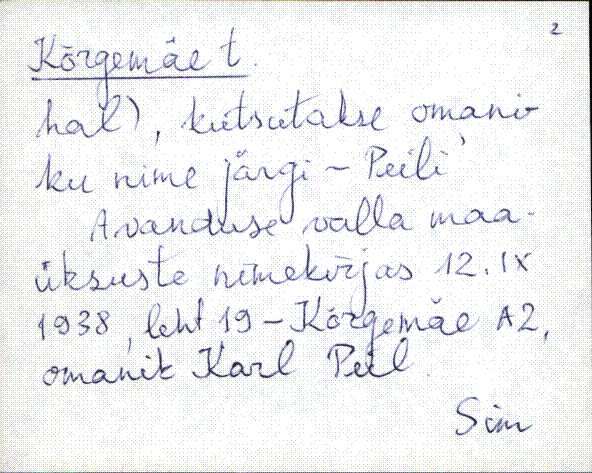 2
Kõrgemäe t.
hal), kutsutakse omani-
ku nime järgi - Peili'
Avanduse valla maa-
üksuste nimekirjas 12.IX
1938, leht 19 - Kõrgemäe A2,
omanik Karl Peil.
Sim